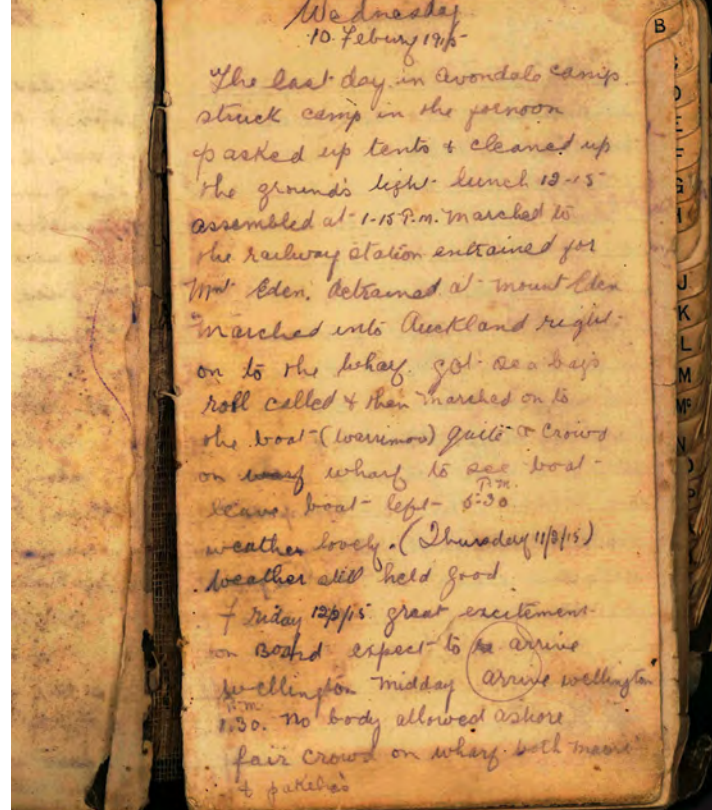 Wednesday
10. Febury 1915
The last day in avondale camp
struck camp in the fornoon
pasked up tents & cleaned up
the grounds light lunch 12-15
assembled at 1-15 P.m. marched to
the railway station entrained for
Mnt Eden. detrained at mount Eden
marched into Auckland right
on to the wharf got sea bags
roll called & then marched on to
the boat (warrimoo) quite a crowd
on warf wharf to see boat
P.m.
leave boat left 5-30
weather lovely. (Thursday 11/2/15)
weather still held good
Friday 12/2/15 great excitement
on Board expect to arrive
wellington midday arrive wellington
P.m.
1.30. no body allowed ashore
fair crowd on wharf both maori
& pakeha's
B
E
F
G
H
J
K
L
M
Mc
N